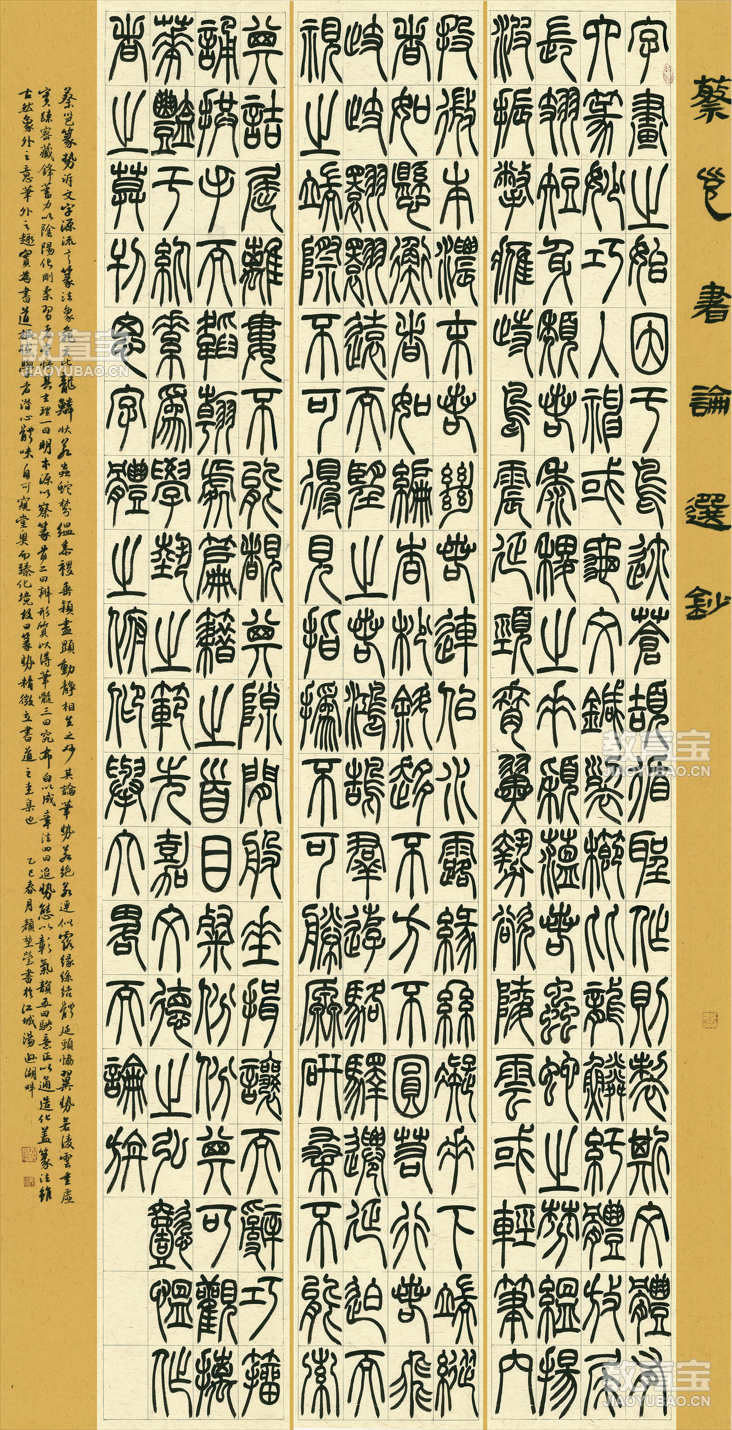 蔡邕書論選鈔
字畫之始因于鳥跡蒼頡循聖作則製斯文體有
六篆妙巧入神或龜文鍼裂櫛比龍鱗紓體放尾
長翅短身頹若黍稷之垂穎蘊若蟲蛇之棼縕揚
波振擊鷹跱鳥震延頸脅翼勢欲陵雲或輕筆內
投微本濃末若絕若連似水露緣絲凝垂下端縱
者如懸衡者如編杳杪邪趣不方不圓若行若飛
蚑蚑翾翾遠而望之若鴻鵠羣遊駱驛遷延迫而
視之端際不可得見指撝不可勝原研桑不能數
其詰屈離婁不能覩其隙間般倕揖讓而辭巧籀
誦拱手而韜翰處篇籍之首目粲份份其可觀摛
華豔于紈素為學藝之範先嘉文德之弘懿慍作
者之莫刊思字體之俯仰舉大略而論旃
蔡邕篆勢詳文字源流言篆法象龜文比龍鱗狀若蟲蛇棼縕若稷垂穎盡顯動靜相生之妙其論筆勢若絕若連似露緣絲結體延頸協翼勢若凌雲重虛
實疏密藏鋒蓄力以陰陽化剛柔習者當具玄理一曰明本源以察篆旨二曰辨形質以得筆髓三曰究布白以成章法四曰追勢態以彰氣韻五曰融意匠以通造化蓋篆法雖
古然象外之意筆外之趣實為書道樞機學者潛心體味自可窺堂奧而臻化境故曰篆勢精微立書道之圭臬也 乙巳春月顏楚瑩書於江城湯遜湖畔
教育宝
JIAOYUBAO.CN
教育宝
JIAOYUBAO.CN
教育宝
JIAOYUBAO.CN